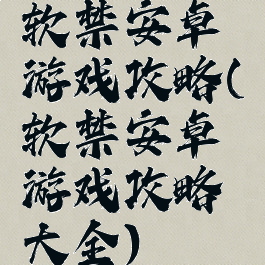 软禁安卓
游戏攻略(
软禁安卓
游戏攻略
大全)